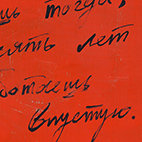 шь тогда,
сять лет
ботаешь
впустую.